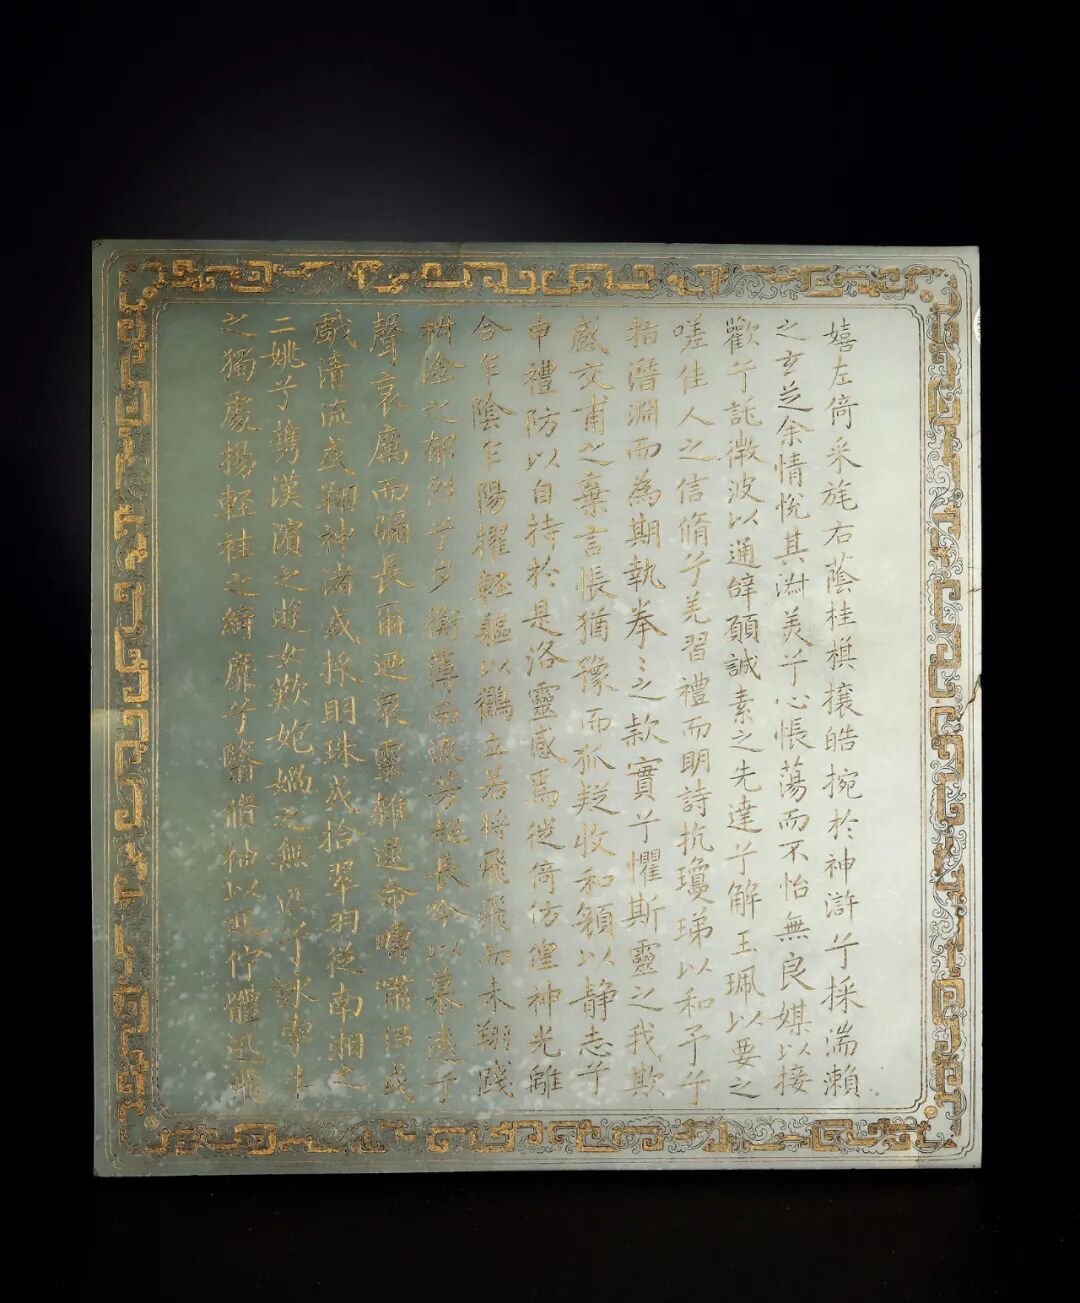 嬉左倚采旄右蔭桂棋攘皓捥於神滸兮採湍瀨
之玄芝余情悅其淑美兮心悵蕩而不怡無良媒以接
歡兮託微波以通辭願誠素之先達兮解玉珮以要之
嗟佳人之信脩兮羌習禮而明詩抗瓊珶以和予兮
指潛淵而為期執拳〻之款實兮懼斯靈之我欺
感交甫之棄言悵猶豫而狐疑收和顏以静志兮
申禮防以自持於是洛靈感焉徙倚仿偟神光離
合乍陰乍陽擢軽軀以鶴立若将飛飛而未翔踐
椒塗之郁烈兮步衡薄而流芳超長吟以慕遠兮
聲哀厲而彌長爾迺眾靈雜遝命疇嘯侶或
戲清流或翔神渚或採明珠或拾翠羽從南湘之
二姚兮攜漢濱之遊女歎媧之無匹兮詠牽牛
之獨處揚軽袿之綺靡兮翳脩袖以延佇體迅飛